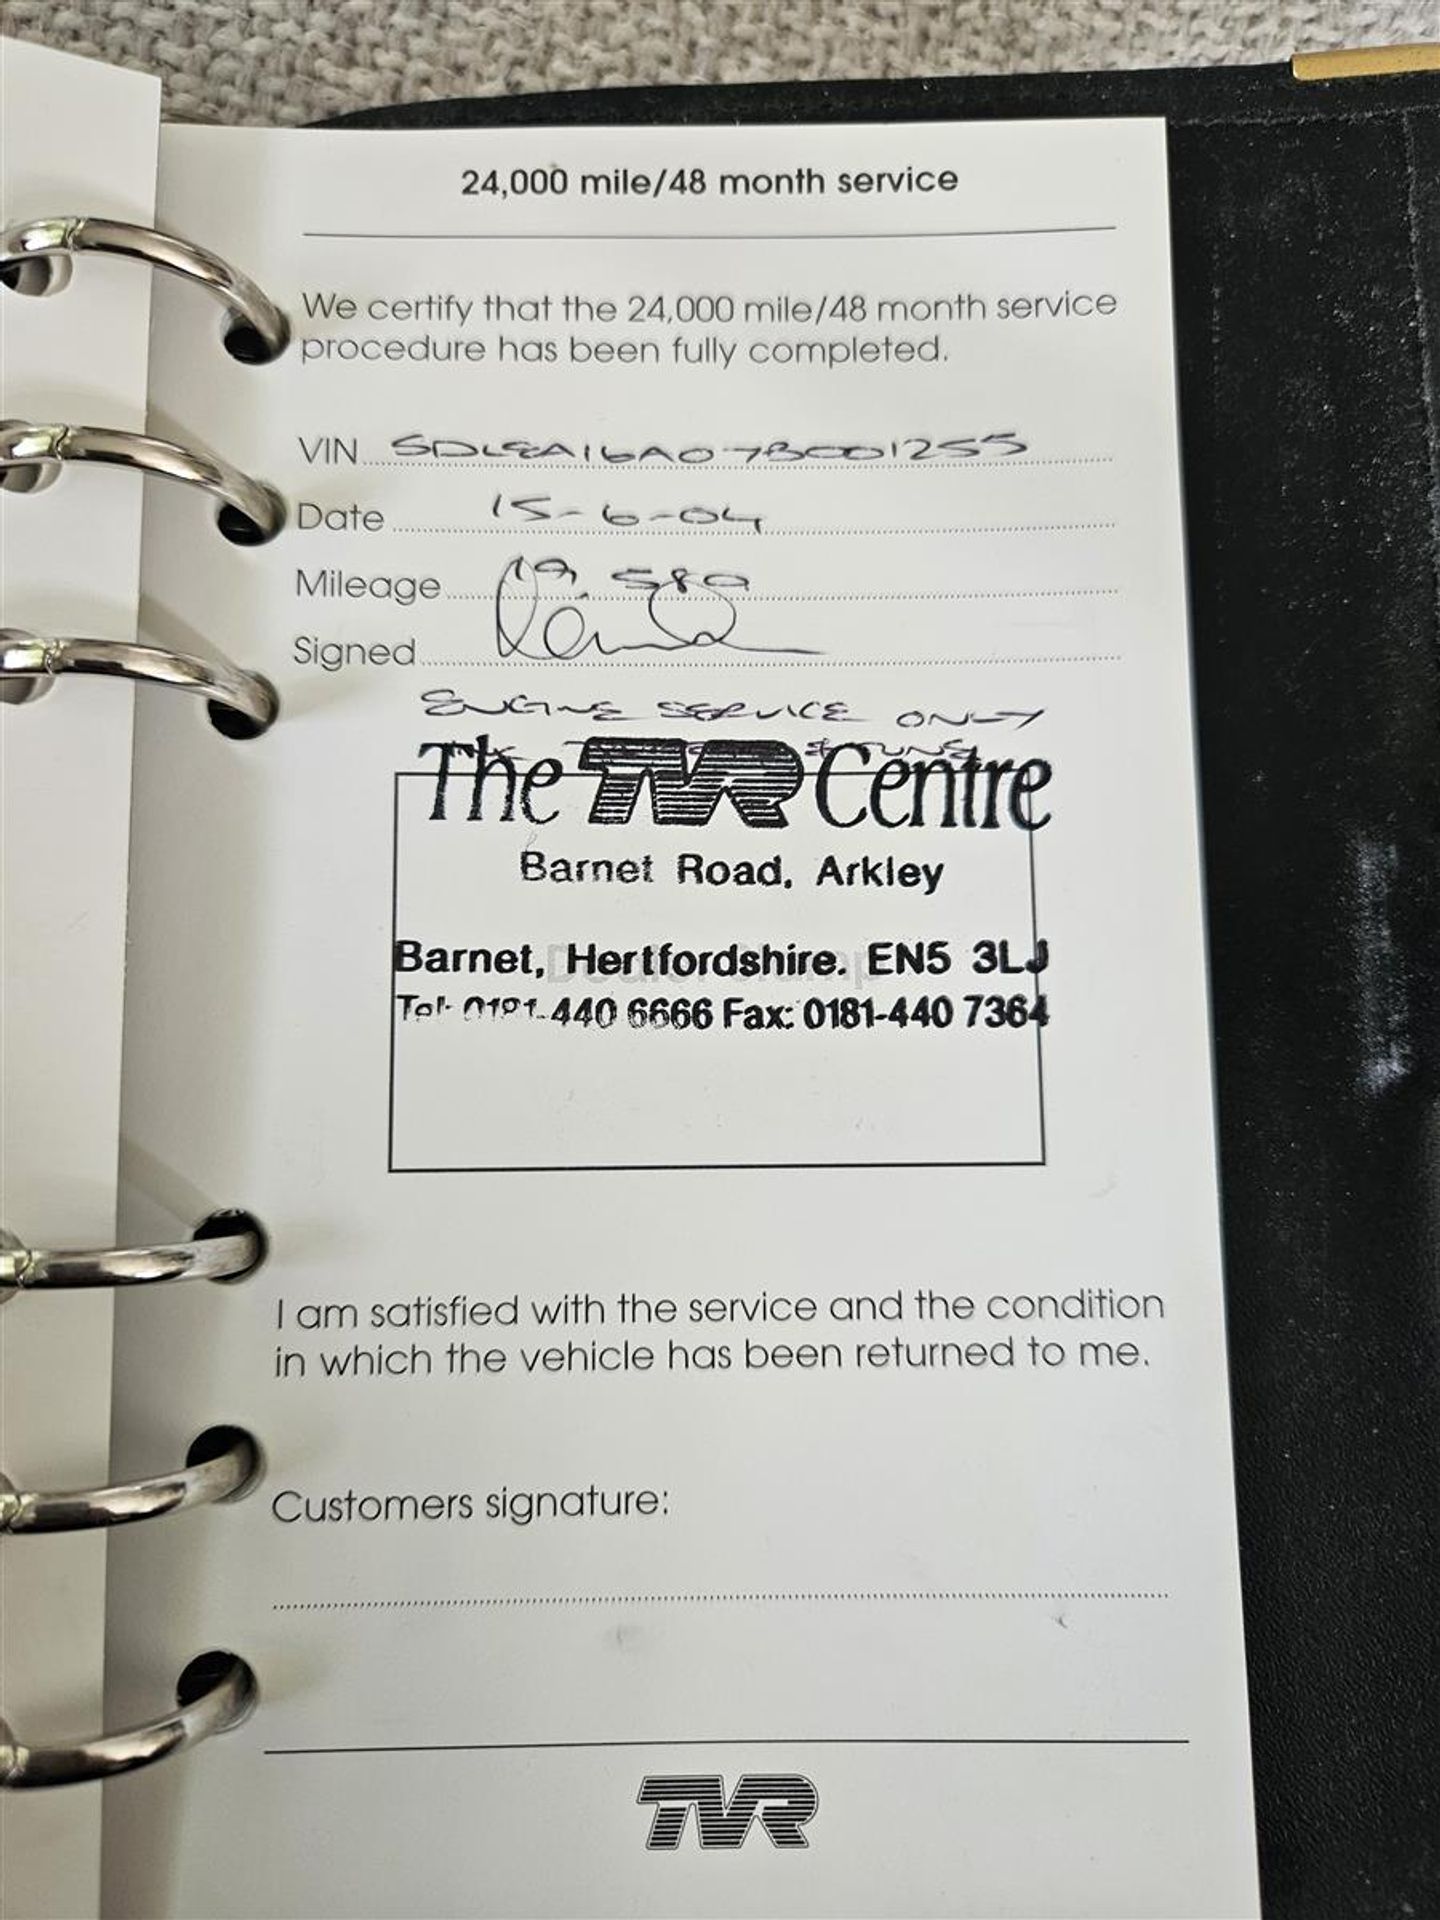 24,000 mile/48 month service
We certify that the 24,000 mile/48 month service
procedure has been fully completed.
VIN SDLEA16A07B001255
Date 15-6-04
Mileage 19,589
Signed
ENGINE SERVICE ONLY
The TVR Centre
Barnet Road, Arkley
Barnet, Hertfordshire. EN5 3LJ
Tel: 0181-440 6666 Fax: 0181-440 7364
I am satisfied with the service and the condition
in which the vehicle has been returned to me.
Customers signature:
TVR